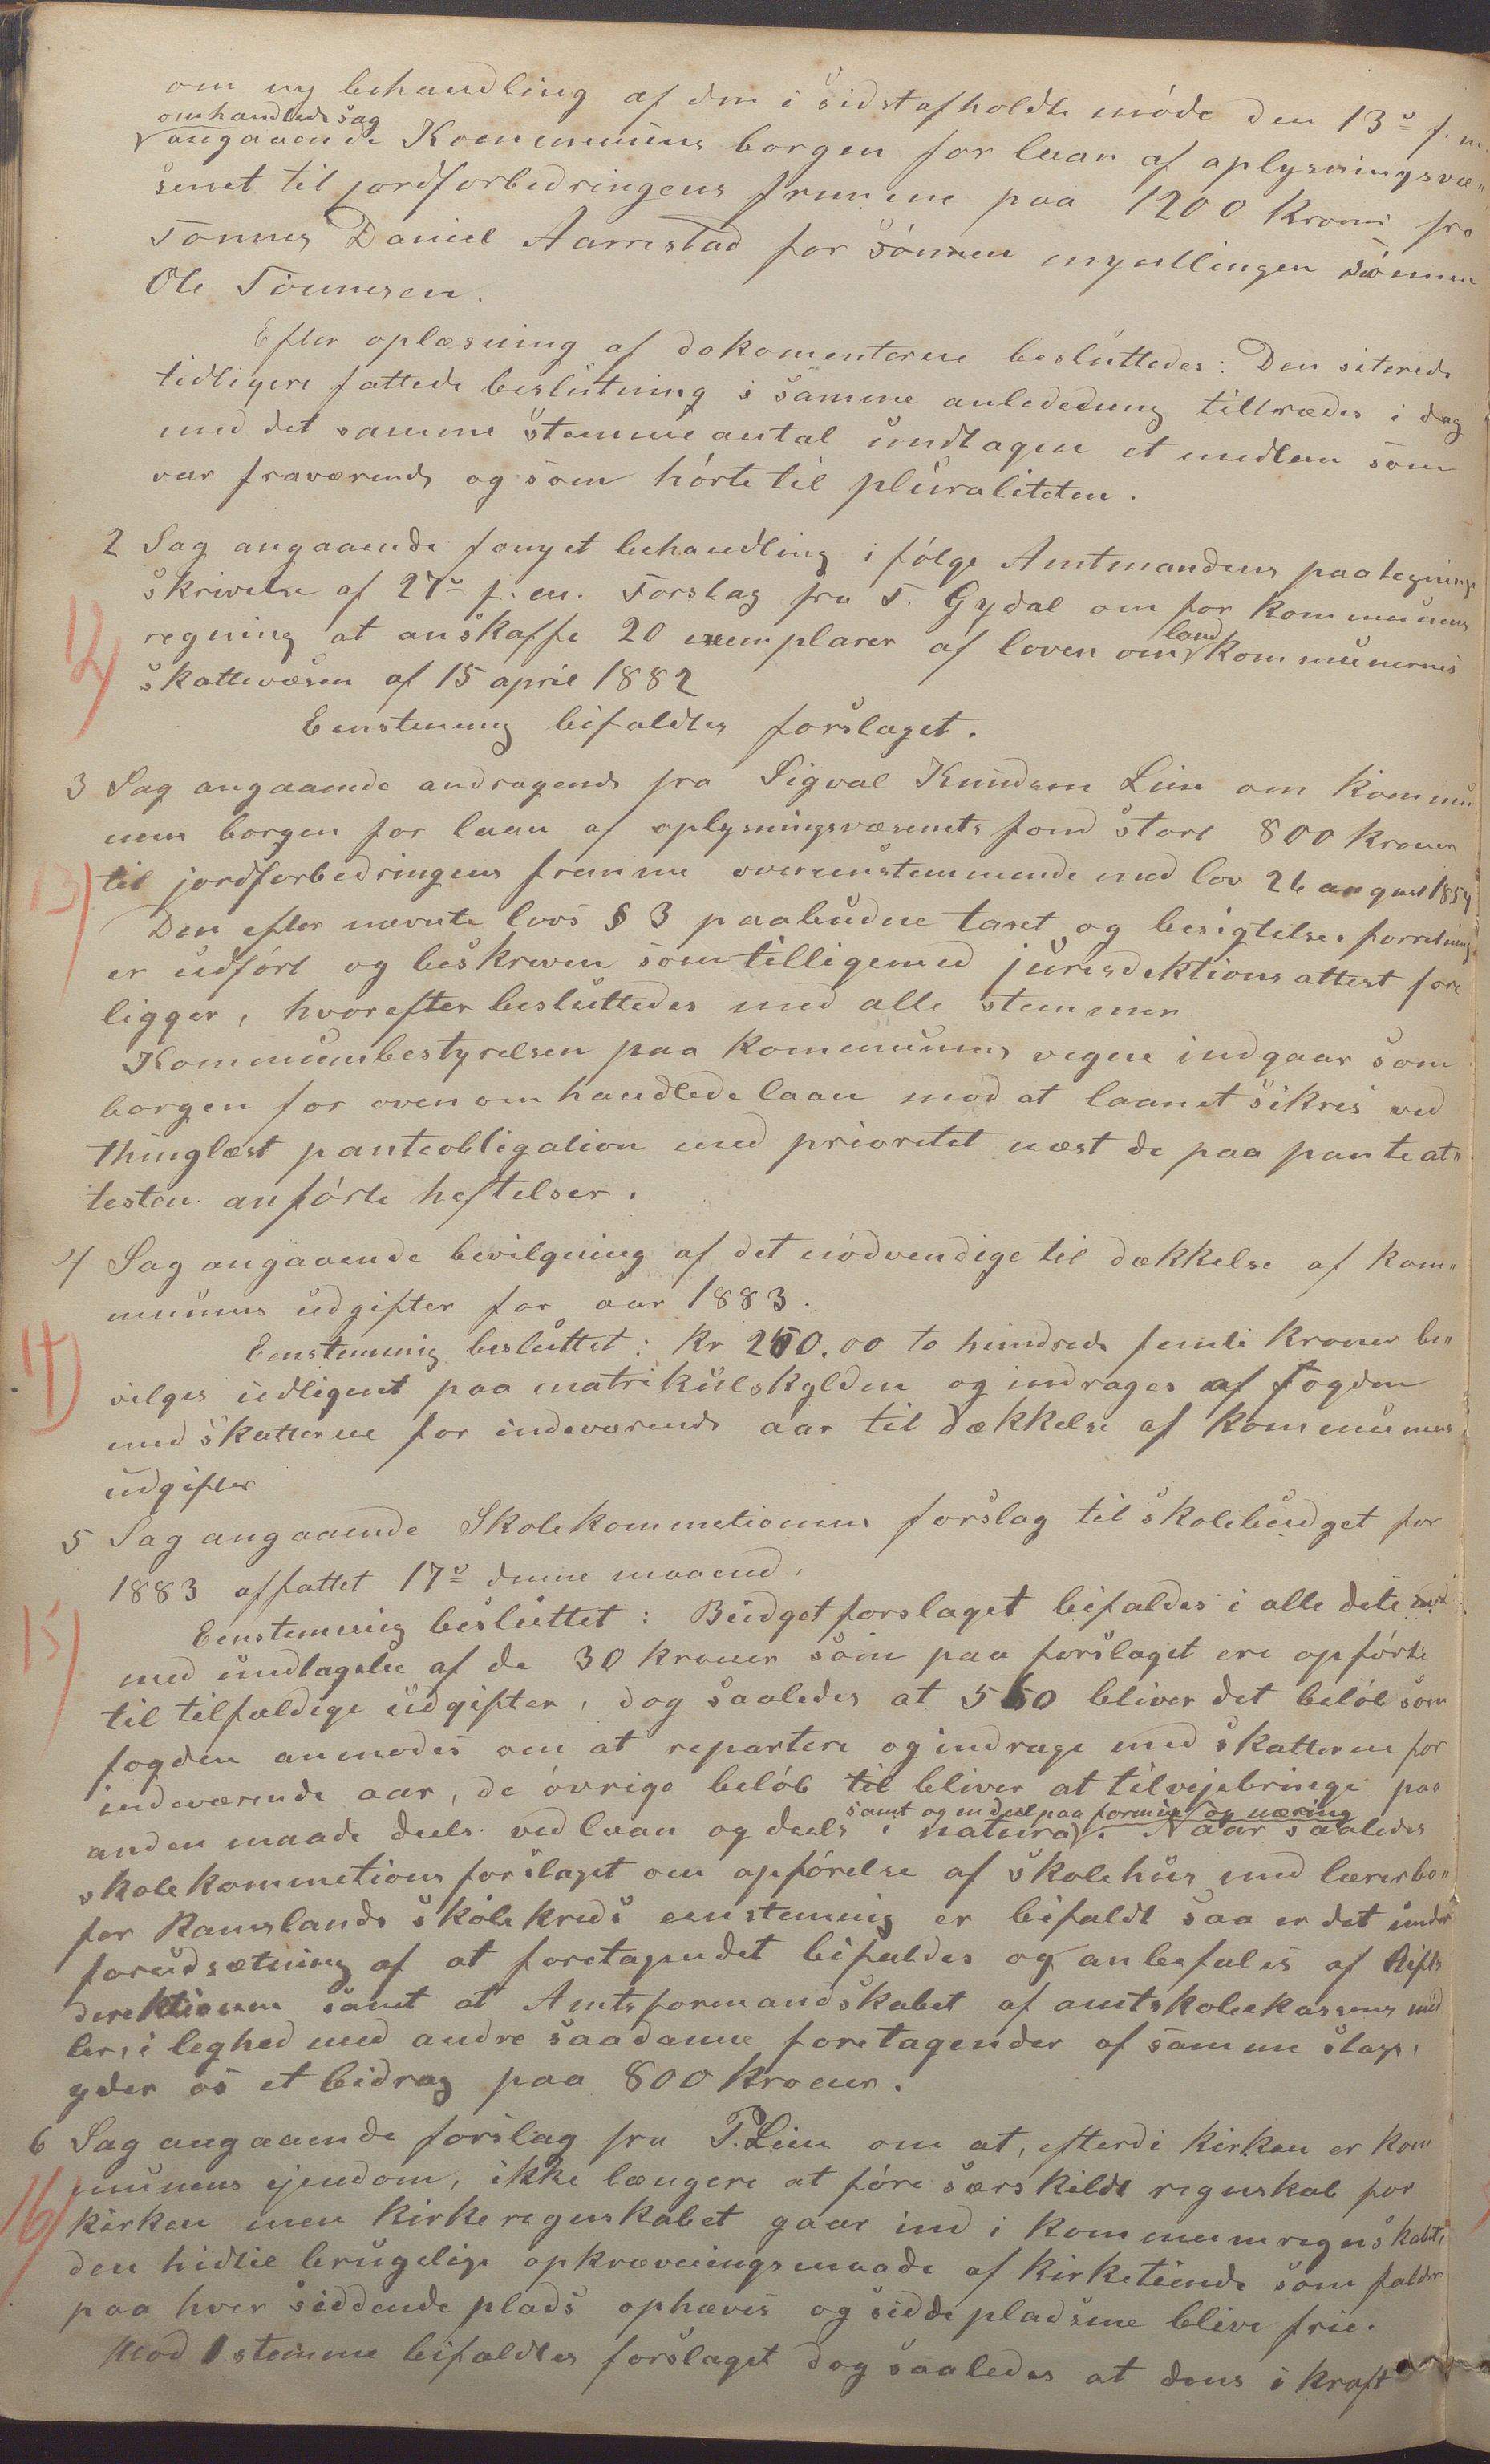 om ny behandling af den i sidst afholdte møde den 13de f. m.
omhandlede sag
angaaende Kommunens borgen for laan af oplysningsvæ„
senet til jordforbedringens fremme paa 1200 Kroner fra
Tønnes Daniel Aarrestad for sønnen myndlingen sønnen
Ole Tønnesen.
Efter oplæsning af dokomenterne besluttedes: Den siterede
tidligere fattede beslutning i samme anledning tiltrædes i dag
med det samme stemmeantal undtagen et medlem som
var fraværende og som hørte til pluraliteten.
2 Sag angaaende fornyet behandling i følge Amtmandens paategnings
skrivelse af 27de f. m. Forslag fra T. Gydal om for kommunens
12)
regning at anskaffe 20 exemplarer af loven om land kommunernes
skattevæsen af 15 april 1882
Eenstemmig bifaldtes forslaget.
3 Sag angaaende andragende fra Sigval Knudsen Lien om kommu
nens borgen for laan af oplysningsvæsenets fond stort 800 kroner
13)
til jordforbedringens fremme overensstemmende med lov 26 august 1854
Den efter nævnte lovs § 3 paabudne taxt og besigtelses forretning
er udført og beskreven som tilligemed jurisdektions attest fore
ligger, hvorefter besluttedes med alle stemmer
Kommunebestyrelsen paa Kommunens vegne indgaar som
borgen for ovenomhandlede laan mod at laanet sikres ved
thinglæst panteobligation med prioritet næst de paa panteat„
testen anførte heftelser.
4 Sag angaaende bevilgning af det nødvendige til dækkelse af kom„
munens udgifter for aar 1883.
14)
Eenstemmig besluttet: Kr 250.00 to hundrede femti kroner be„
vilges udlignet paa matrikulskylden og inddrages af fogden
med skatterne for indeværende aar til dækkelse af kommunens
udgifter
5 Sag angaaende Skolekommetionens forslag til skolebudget for
1883 affattet 17de denne maaned.
15)
Eenstemmig besluttet: Budgetforslaget bifaldes i alle dele
med undtagelse af de 30 kroner som paa forslaget ere opførte
til tilfældige udgifter, dog saaledes at 550 bliver det beløb som
fogden anmodes om at repartere og inddrage med skatterne for
indeværende aar, de øvrige beløb til bliver at tilvejebringe paa
samt og en deel paa formue og næring
anden maade deels ved laan og deels i natura. Naar saaledes
skolekommetions forslaget om opførelse af skolehus med lærerbo„
for Ramslands skolekreds eenstemmig er bifaldt saa er det under
forudsætning af at foretagendet bifaldes og anbefales af stifts
derektionen samt at Amtsformandskabet af amtskolekassens mid
ler, i leghed med andre saadanne foretagender af samme slags,
yder os et bidrag paa 800 kroner.
6 Sag angaaende forslag fra P. Lien om at, efterdi kirken er kom
munens ejendom, ikke længere at føre særskildt regnskab for
16)
kirken men kirkeregnskabet gaar ind i kommuneregnskabet,
den hidtil brugelige opkrævningsmaade af kirketiende som falder
paa hver siddende plads ophæves og siddepladsene blive frie.
Mod 1 stemme bifaldtes forslaget dog saaledes at dens i kraft